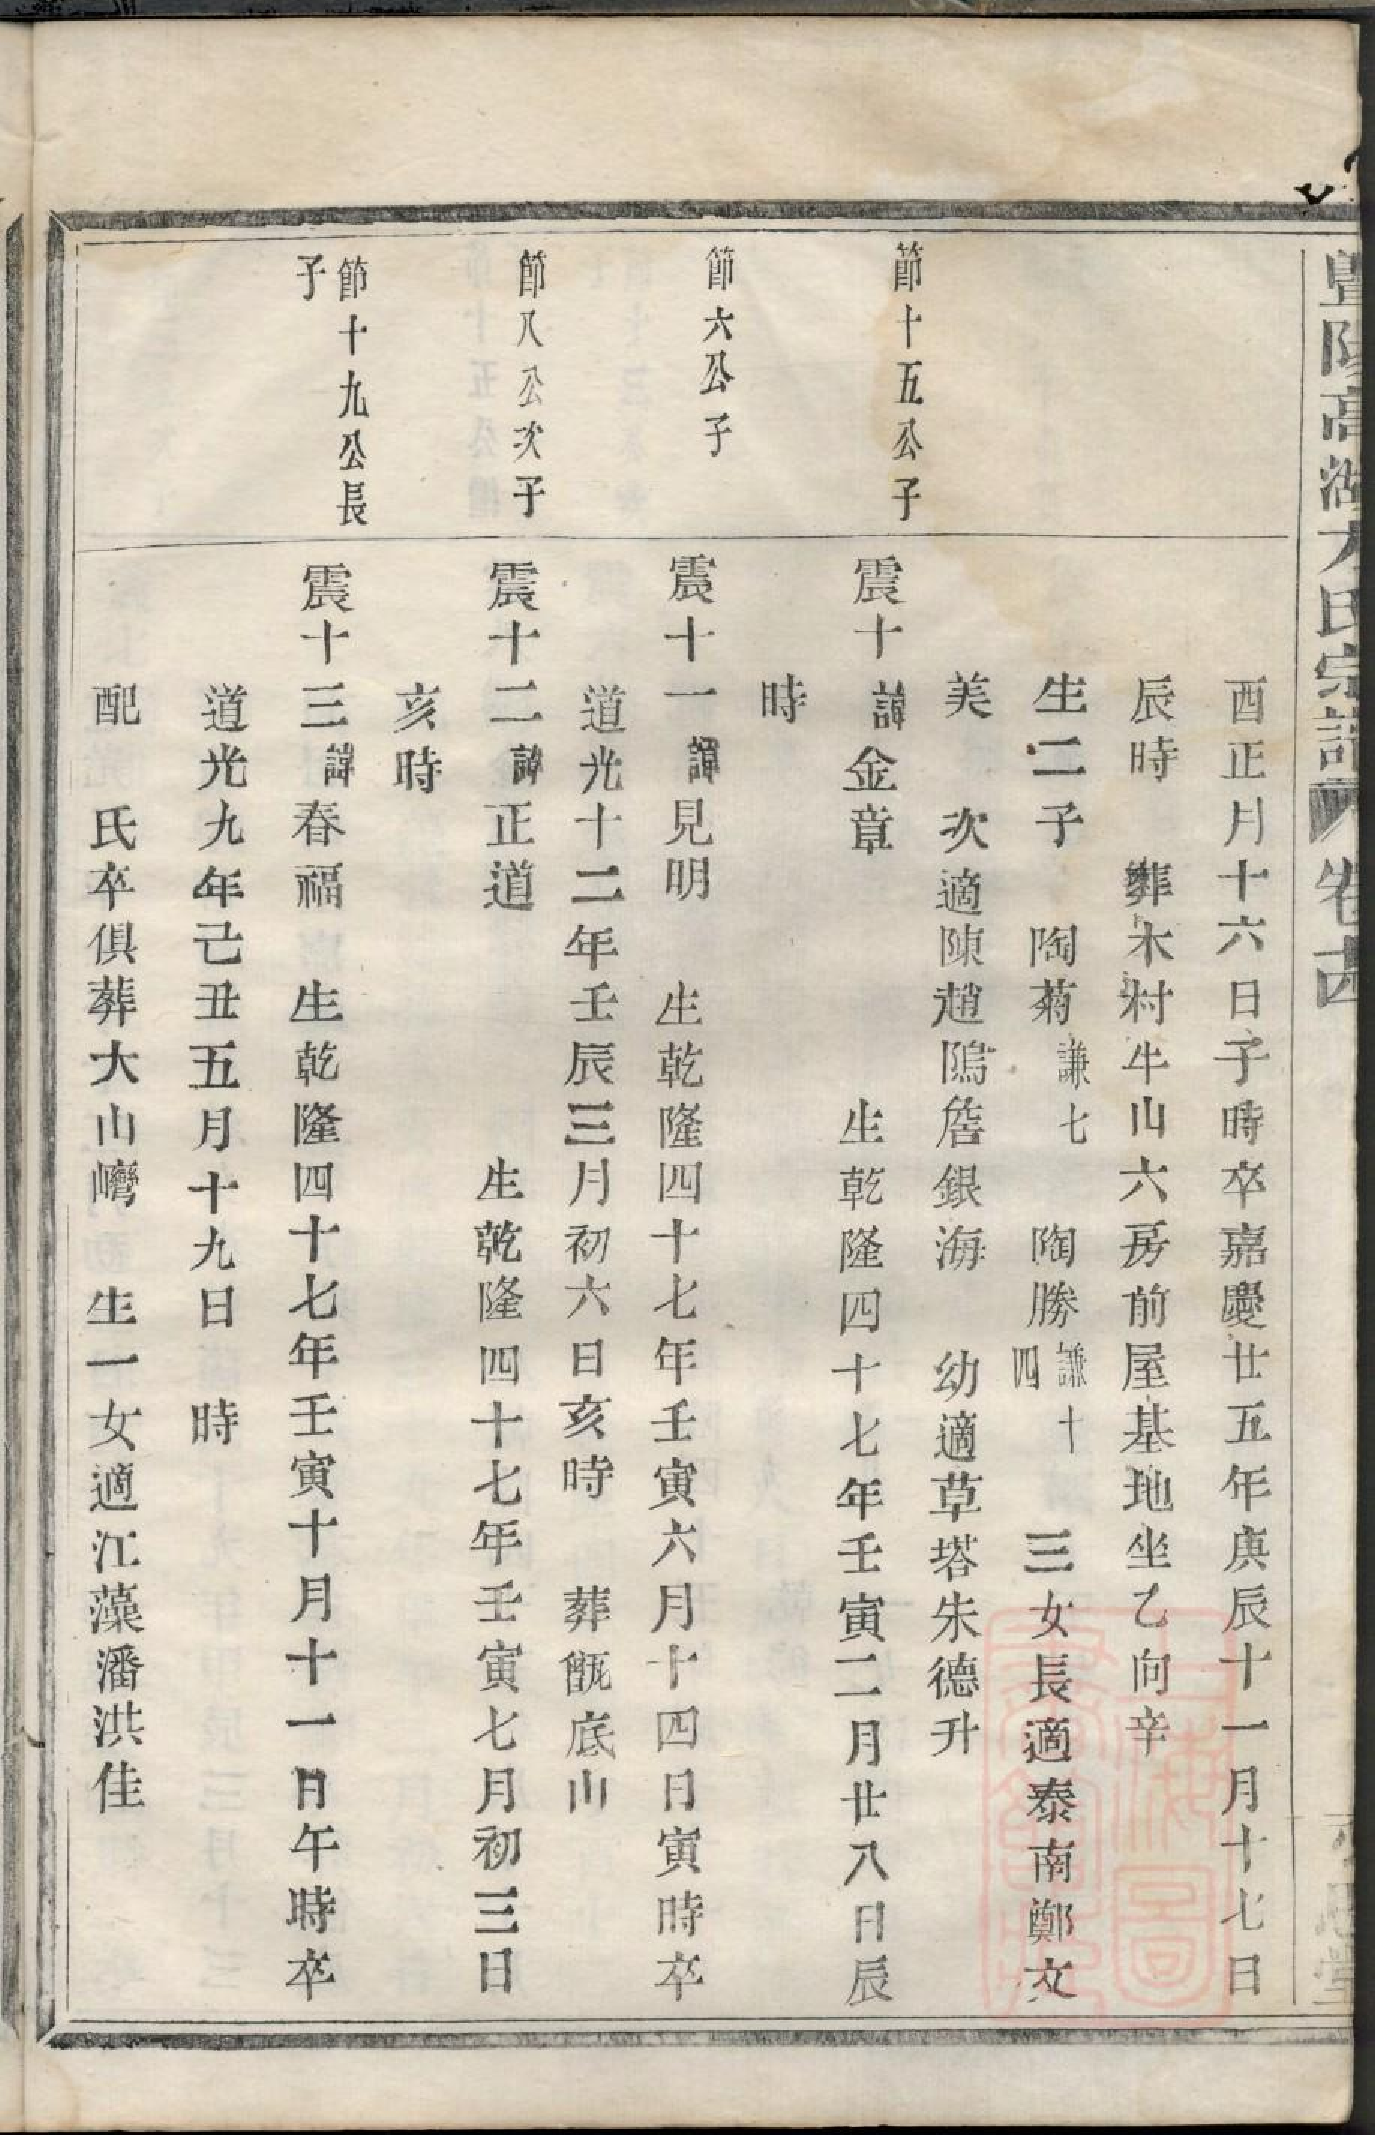 暨陽高湖方氏宗譜 卷十四
酉正月十六日子時卒嘉慶廿五年庚辰十一月十七日
辰時 葬木村牛山六房前屋基地坐乙向辛
生二子 陶菊謙七 陶勝謙十四 三女長適泰南鄭文
美 次適陳趙隖詹銀海 幼適草塔朱德升
節十五公子
震十 諱金章 生乾隆四十七年壬寅二月廿八日辰
時
節六公子
震十一諱見明 生乾隆四十七年壬寅六月十四日寅時卒
道光十二年壬辰三月初六日亥時 葬甑底山
節八公次子
震十二諱正道 生乾隆四十七年壬寅七月初三日
亥時
節十九公長子
震十三諱春福 生乾隆四十七年壬寅十月十一日午時卒
道光九年己丑五月十九日 時
配 氏卒俱葬大山嶹 生一女適江藻潘洪佳